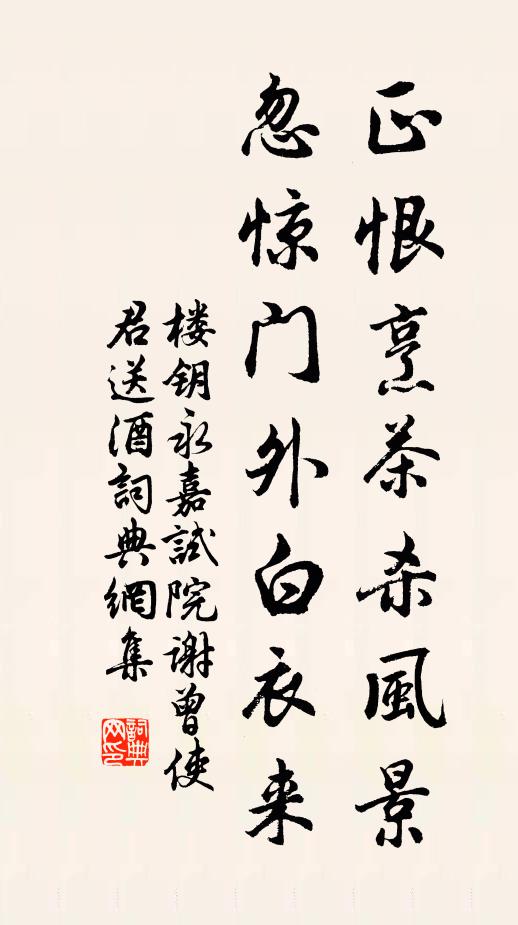 正恨烹茶杀風景
忽惊门外白衣来
楼钥永嘉試院謝曾使
君送酒詞典網集
詞典網印